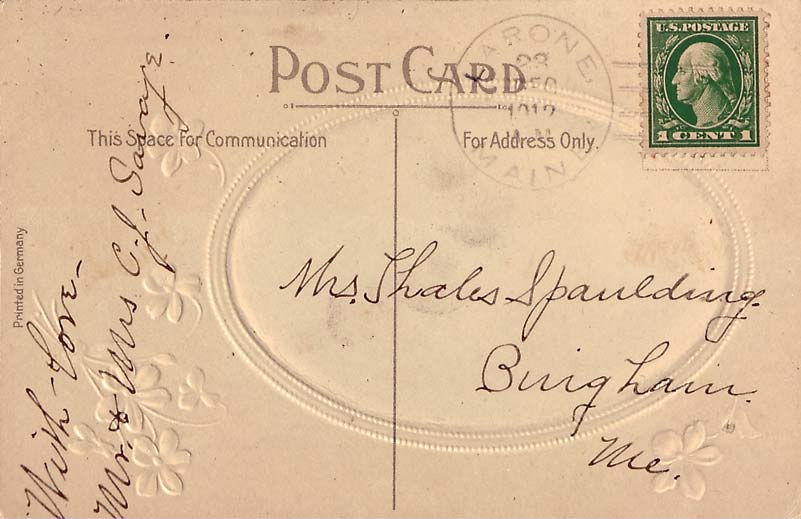 POST CARD
This Space For Communication
For Address Only.
U.S. POSTAGE
1 CENT 1
CARONE,
23
DEC
1912
A.M.
MAINE
Printed in Germany
With-Love-
Mr. & Mrs C. J. Savage.
Mrs. Thales Spaulding.
Bingham.
Me.